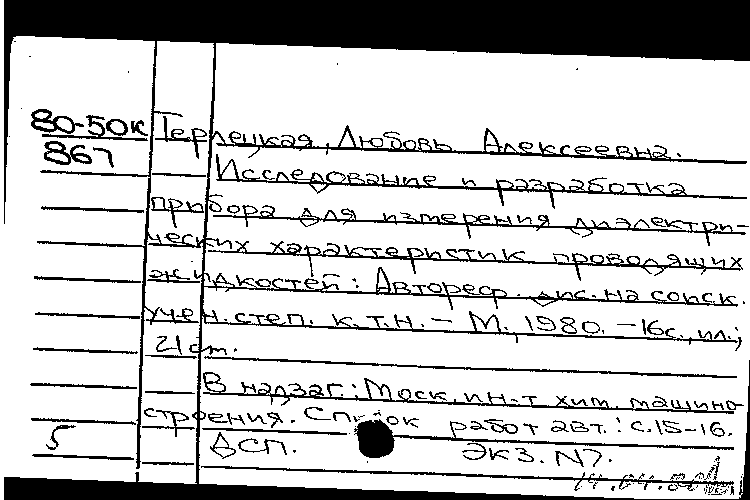 80-50к Терлецкая, Любовь Алексеевна.
867 Исследование и разработка
прибора для измерения диэлектри-
ческих характеристик проводящих
жидкостей: Автореф. дис. на соиск.
учен. степ. к.т.н. – М., 1980. – 16с., ил.;
21 см.
В надзаг.: Моск. ин-т хим. машино-
строения. Список работ авт.: с.15-16.
5 ДСП. Экз. N7.
14.04.80